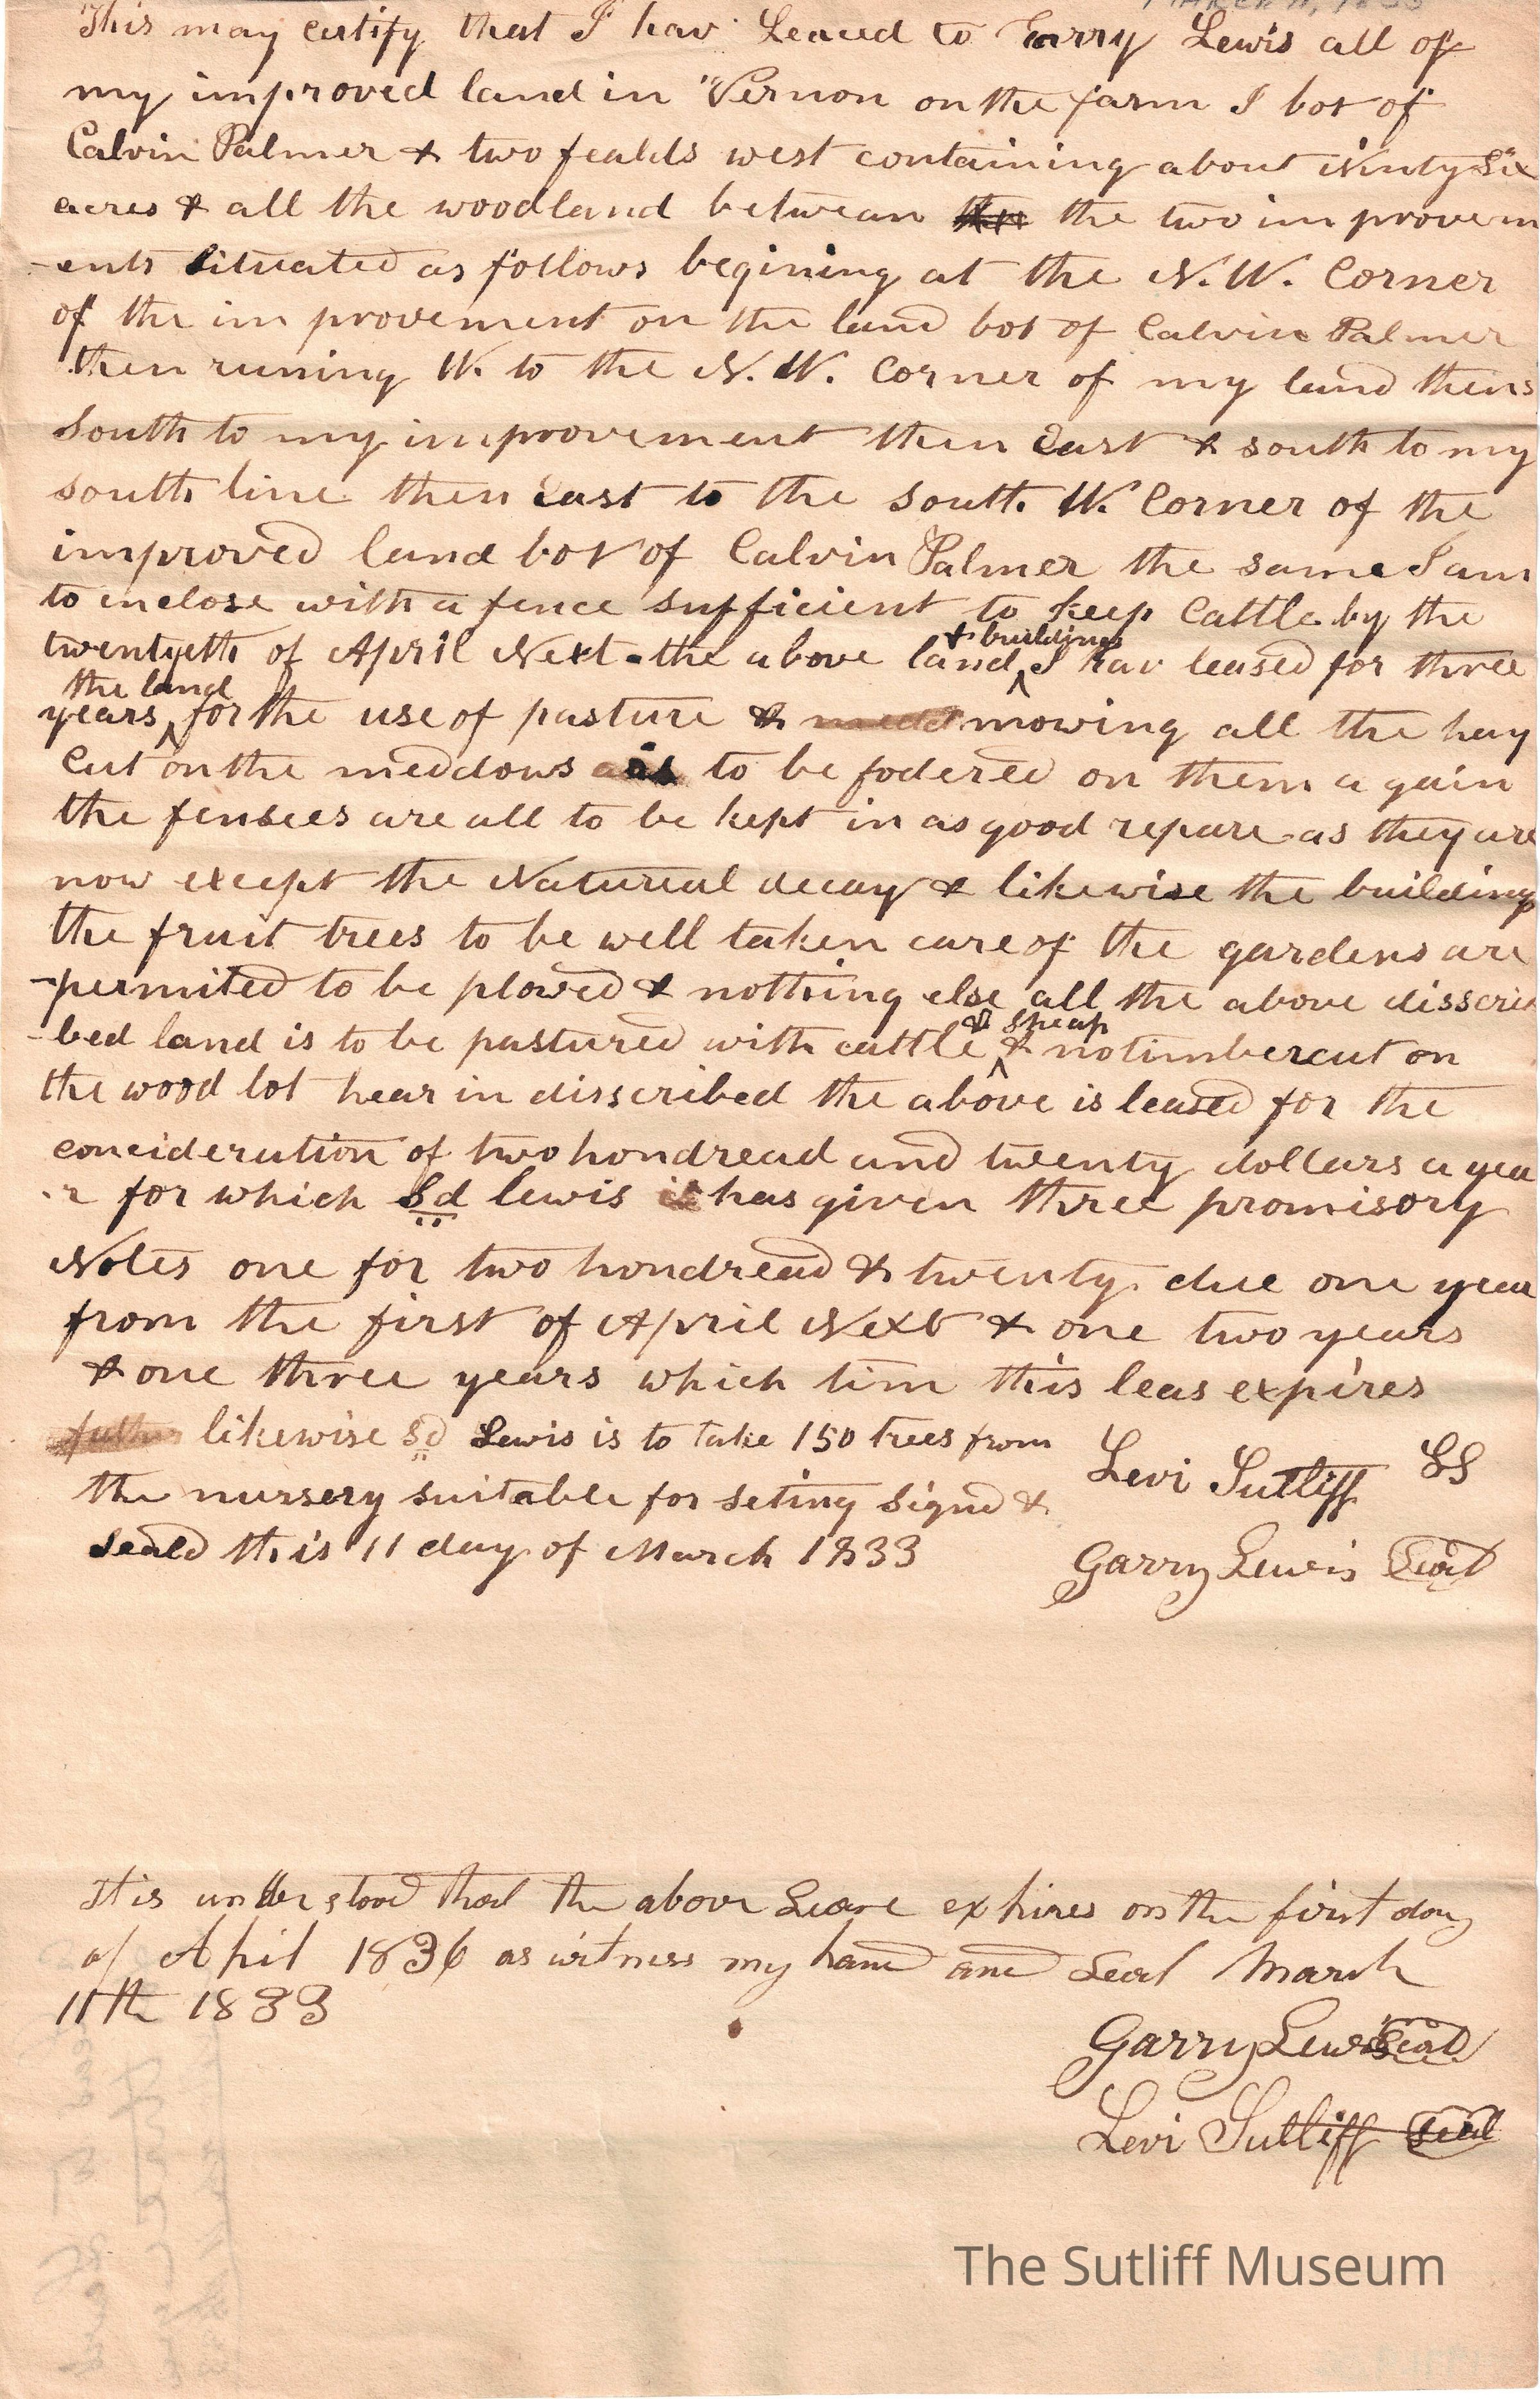 MARCH 11, 1833
This may certify that I hav Leaced to Garry Lewis all of
my improved land in Vernon on the farm I bot of
Calvin Palmer & two fealds west containing about Ninty Six
acres & all the woodland betwean the the two improvem
-ents Situated as follows begining at the N. W. Corner
of the improvement on the land bot of Calvin Palmer
then runing W. to the N. W. Corner of my land thens
South to my improvement then East & south to my
south line then East to the South W. Corner of the
improved land bot of Calvin Palmer the same I am
to inclose with a fence sufficient to keep Cattle by the
twentyeth of April Next the above land & buildings I hav leased for three
years the land for the use of pasture & mowing all the hay
Cut on the meddows is to be fodered on them again
the fensees are all to be kept in as good repare as they are
now except the Natureal decay & likewise the buildings
the fruit trees to be well taken care of the gardens are
-permited to be plowed & nothing else all the above disscri
-bed land is to be pastured with cattle & Sheap & no timber cut on
the wood lot hear in disscribed the above is leased for the
concideration of two hondread and twenty dollars a yea
-r for which Sd lewis has given three promisory
Notes one for two hondread & twenty due one year
from the first of April Next & one two years
& one three years which tim this leas expires
likewise Sd Lewis is to take 150 trees from
the nursery suitable for seting Signd &
Seald this 11 day of March 1833
Levi Sutliff LS
Garry Lewis Seal
It is understood that the above Lease expires on the first day
of April 1836 as witness my hand and Seal March
11th 1833
Garry Lewis Seal
Levi Sutliff Seal
The Sutliff Museum